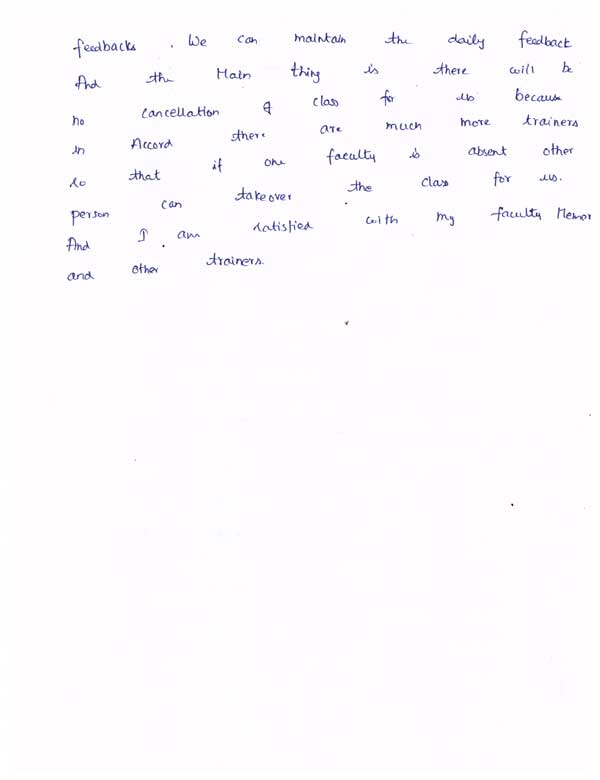 feedbacks. We can maintain the daily feedback
And the Main thing is there will be
no cancellation of class for us because
in Accord there are much more trainers
so that if one faculty is absent other
person can takeover the class for us.
And I am satisfied with my faculty
and other trainers.